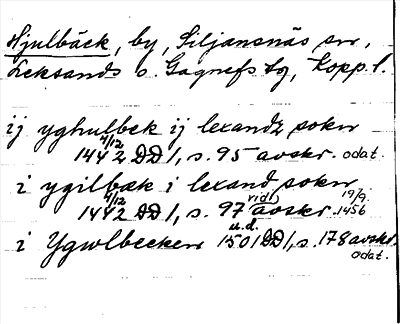 Hjulbäck, by, Siljansnäs sn,
Leksands o. Gagnefs tg, Kopp. l.
ij yghulbek ij lexandz sokn
4/12
1442 DD 1, s. 95 avskr. odat.
i ygilbæk i lexand sokn
4/12 vid. 19/9
1442 DD 1, s. 97 avskr. 1456
u.d.
i Ygwlbecken 1501 DD 1, s. 178 avskr.
odat.